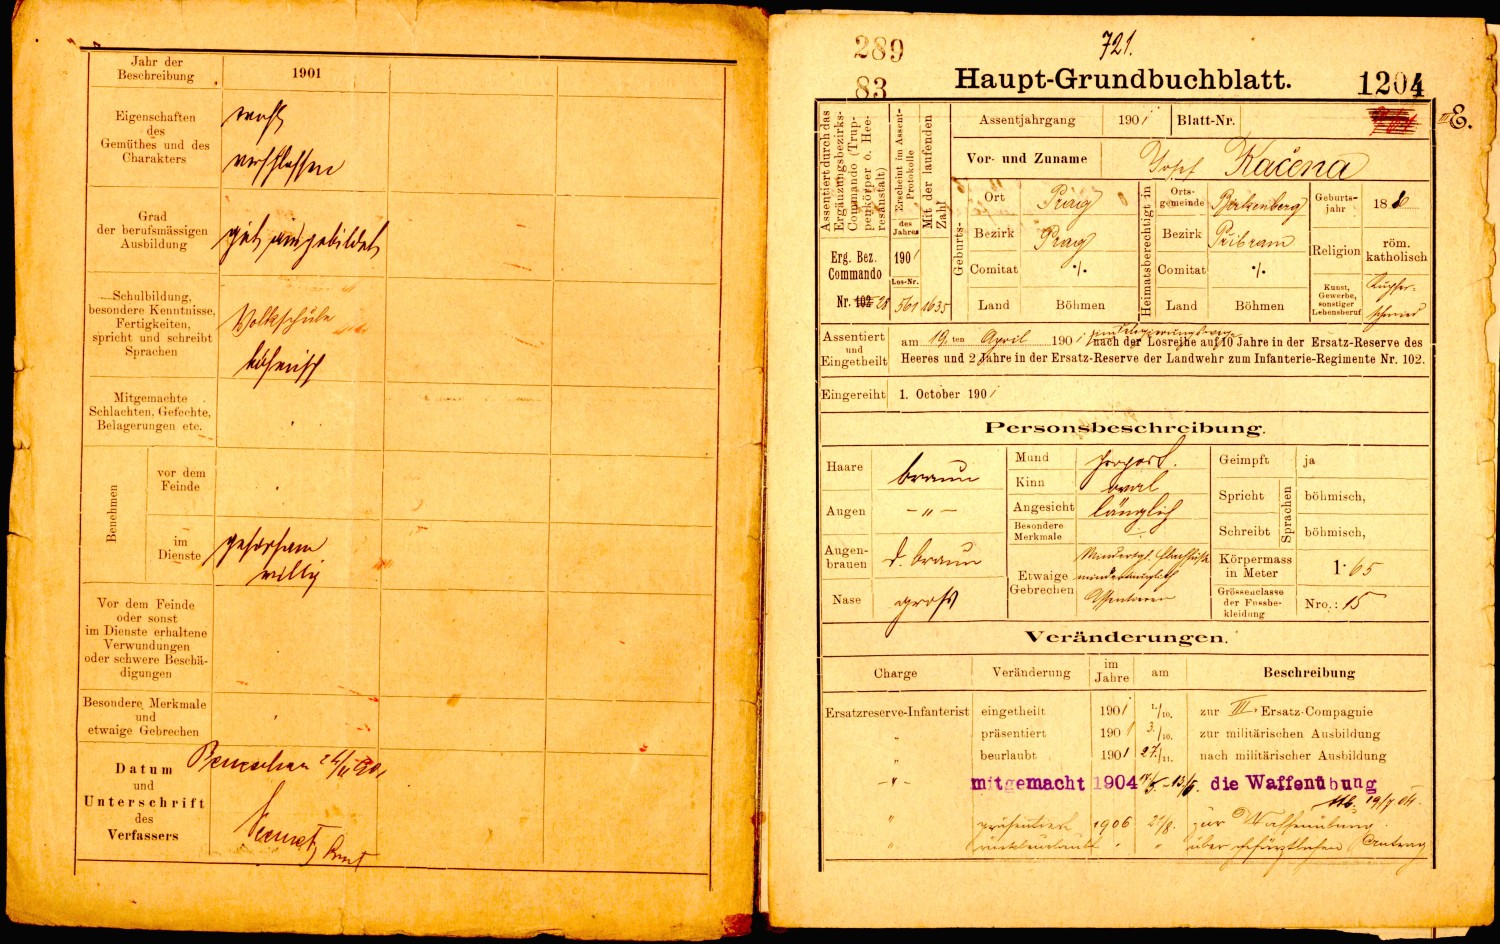 Jahr der
Beschreibung
1901
Eigenschaften
des
Gemüthes und des
Charakters
verschlossen
Grad
der berufsmässigen
Ausbildung
gut ausgebildet
Schulbildung,
besondere Kenntnisse,
Fertigkeiten,
spricht und schreibt
Sprachen
Volksschule
böhmisch
Mitgemachte
Schlachten, Gefechte,
Belagerungen etc.
Benehmen
vor dem
Feinde
im
Dienste
gehorsam
willig
Vor dem Feinde
oder sonst
im Dienste erhaltene
Verwundungen
oder schwere Beschä-
digungen
Besondere Merkmale
und
etwaige Gebrechen
Datum
und
Unterschrift
des
Verfassers
Beneschau
289
83
721.
Haupt-Grundbuchblatt.
1204
Assentiert durch das
Ergänzungsbezirks-
Commando (Trup-
penkörper o. Hee-
resanstalt)
Erg. Bez.
Commando
Nr. 102 28
Erscheint im Assent-
Protokolle
des
Jahres
1901
Los-Nr.
561
Mit der laufenden
Zahl
1635
Assentjahrgang 1901 Blatt-Nr.
III E.
Vor- und Zuname Josef Kačena
Geburts-
Ort Prag
Bezirk Prag
Comitat ·/·
Land Böhmen
Heimatsberechtigt in
Orts-
gemeinde Birkenberg
Bezirk Pribram
Comitat ·/·
Land Böhmen
Geburts-
jahr 188
Religion röm.
katholisch
Kunst,
Gewerbe,
sonstiger
Lebensberuf
Kupfer-
schmied
Assentiert
und
Eingetheilt
am 19. ten April 1901 nach der Losreihe auf 10 Jahre in der Ersatz-Reserve des
Heeres und 2 Jahre in der Ersatz-Reserve der Landwehr zum Infanterie-Regimente Nr. 102.
Eingereiht 1. October 1901
Personsbeschreibung.
Haare braun
Augen – „ –
Augen-
brauen d. braun
Nase groß
Mund proport.
Kinn oval
Angesicht länglich
Besondere
Merkmale
Etwaige
Gebrechen
mindertauglich
Geimpft ja
Spricht böhmisch,
Schreibt böhmisch,
Sprachen
Körpermass
in Meter 1·65
Grössenclasse
der Fussbe-
kleidung Nro.: 15
Veränderungen.
Charge Veränderung im
Jahre am Beschreibung
Ersatzreserve-Infanterist eingetheilt 1901 1./10. zur III. Ersatz-Compagnie
„ präsentiert 1901 3./10. zur militärischen Ausbildung
„ beurlaubt 1901 27./11. nach militärischer Ausbildung
– „ – mitgemacht 1904 die Waffenübung
19/7 04.
„ präsentiert 1906 2/8. zur Waffenübung
„ „ „ über Antrag